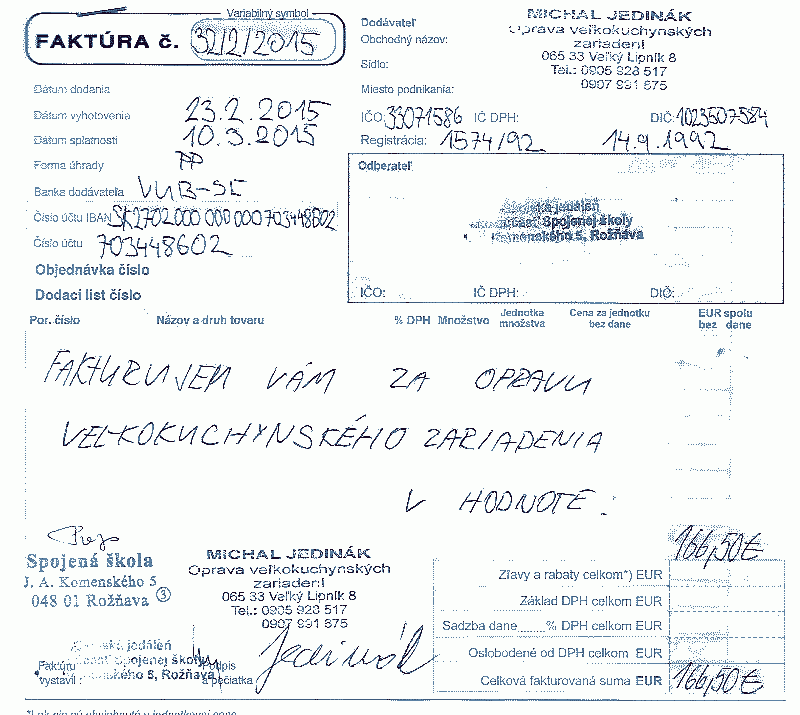 Variabilný symbol
FAKTÚRA č. 32/2/2015
Dátum dodania
Dátum vyhotovenia 23.2.2015
Dátum splatnosti 10.3.2015
Forma úhrady PP
Banka dodávateľa VUB-SE
Číslo účtu IBAN SK2702000 000 000 703448602
Číslo účtu 703448602
Objednávka číslo
Dodací list číslo
Dodávateľ
Obchodný názov:
Sídlo:
Miesto podnikania:
MICHAL JEDINÁK
Oprava veľkokuchynských
zariadení
065 33 Veľký Lipník 8
Tel.: 0905 928 517
0907 991 875
IČO: 33071586 IČ DPH: DIČ: 1023507584
Registrácia: 1574/92 14.9.1992
Odberateľ
jedáleň
Spojenej školy
Komenského 5, Rožňava
IČO: IČ DPH: DIČ:
Por. číslo Názov a druh tovaru % DPH Množstvo Jednotka množstva Cena za jednotku bez dane EUR spolu bez dane
FAKTURUJEM VÁM ZA OPRAVU
VEĽKOKUCHYNSKÉHO ZARIADENIA
V HODNOTE:
166,50€
Spojená škola
J. A. Komenského 5
048 01 Rožňava ③
MICHAL JEDINÁK
Oprava veľkokuchynských
zariadení
065 33 Veľký Lipník 8
Tel.: 0905 928 517
0907 991 875
Zľavy a rabaty celkom*) EUR
Základ DPH celkom EUR
Sadzba dane % DPH celkom EUR
Oslobodené od DPH celkom EUR
Celková fakturovaná suma EUR 166,50€
jedáleň
Spojenej školy
Komenského 5, Rožňava
Faktúru
vystavil :
Podpis
a pečiatka
Jedinák